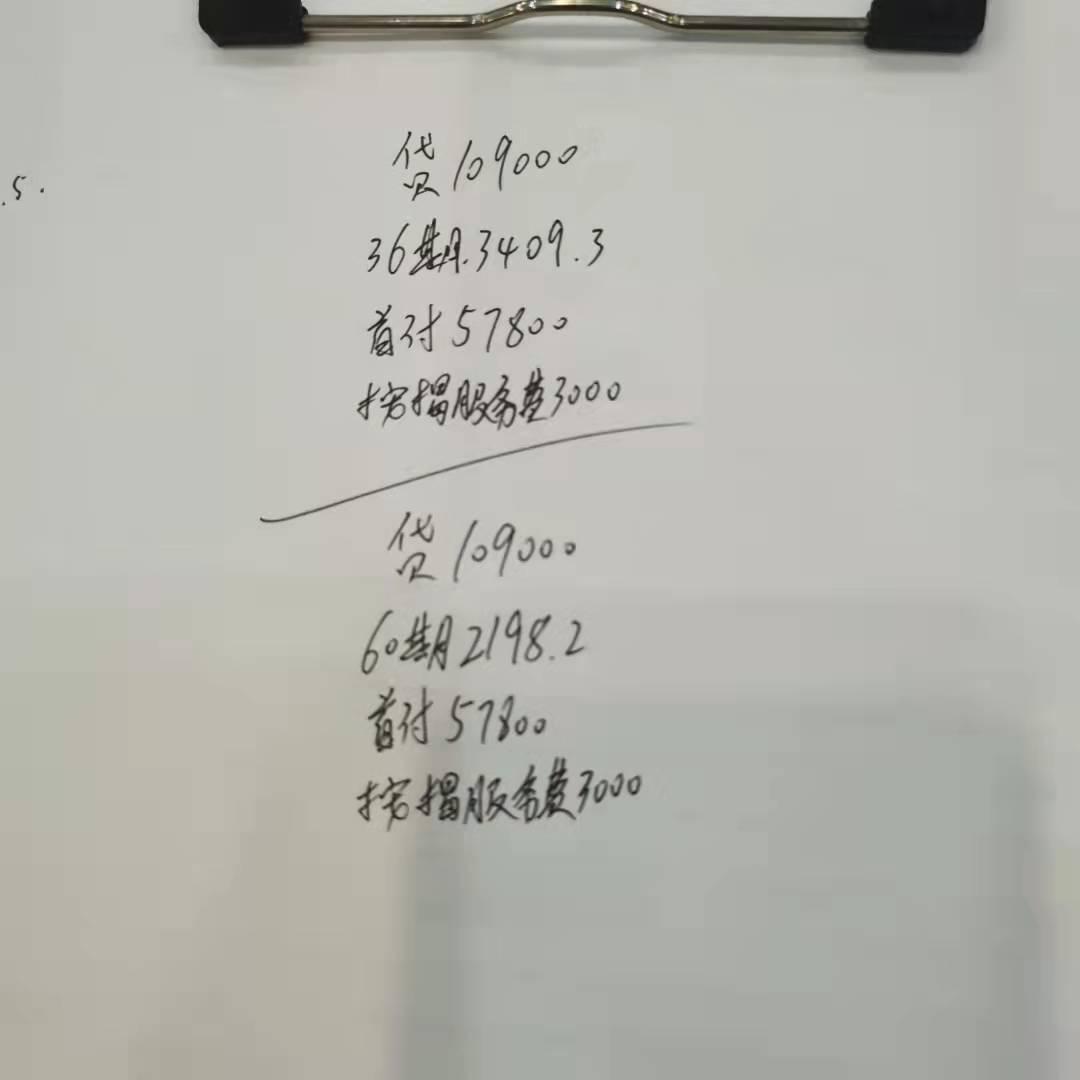 .5.
贷109000
36期.3409.3
首付57800
按揭服务费3000
贷109000
60期2198.2
首付57800
按揭服务费3000